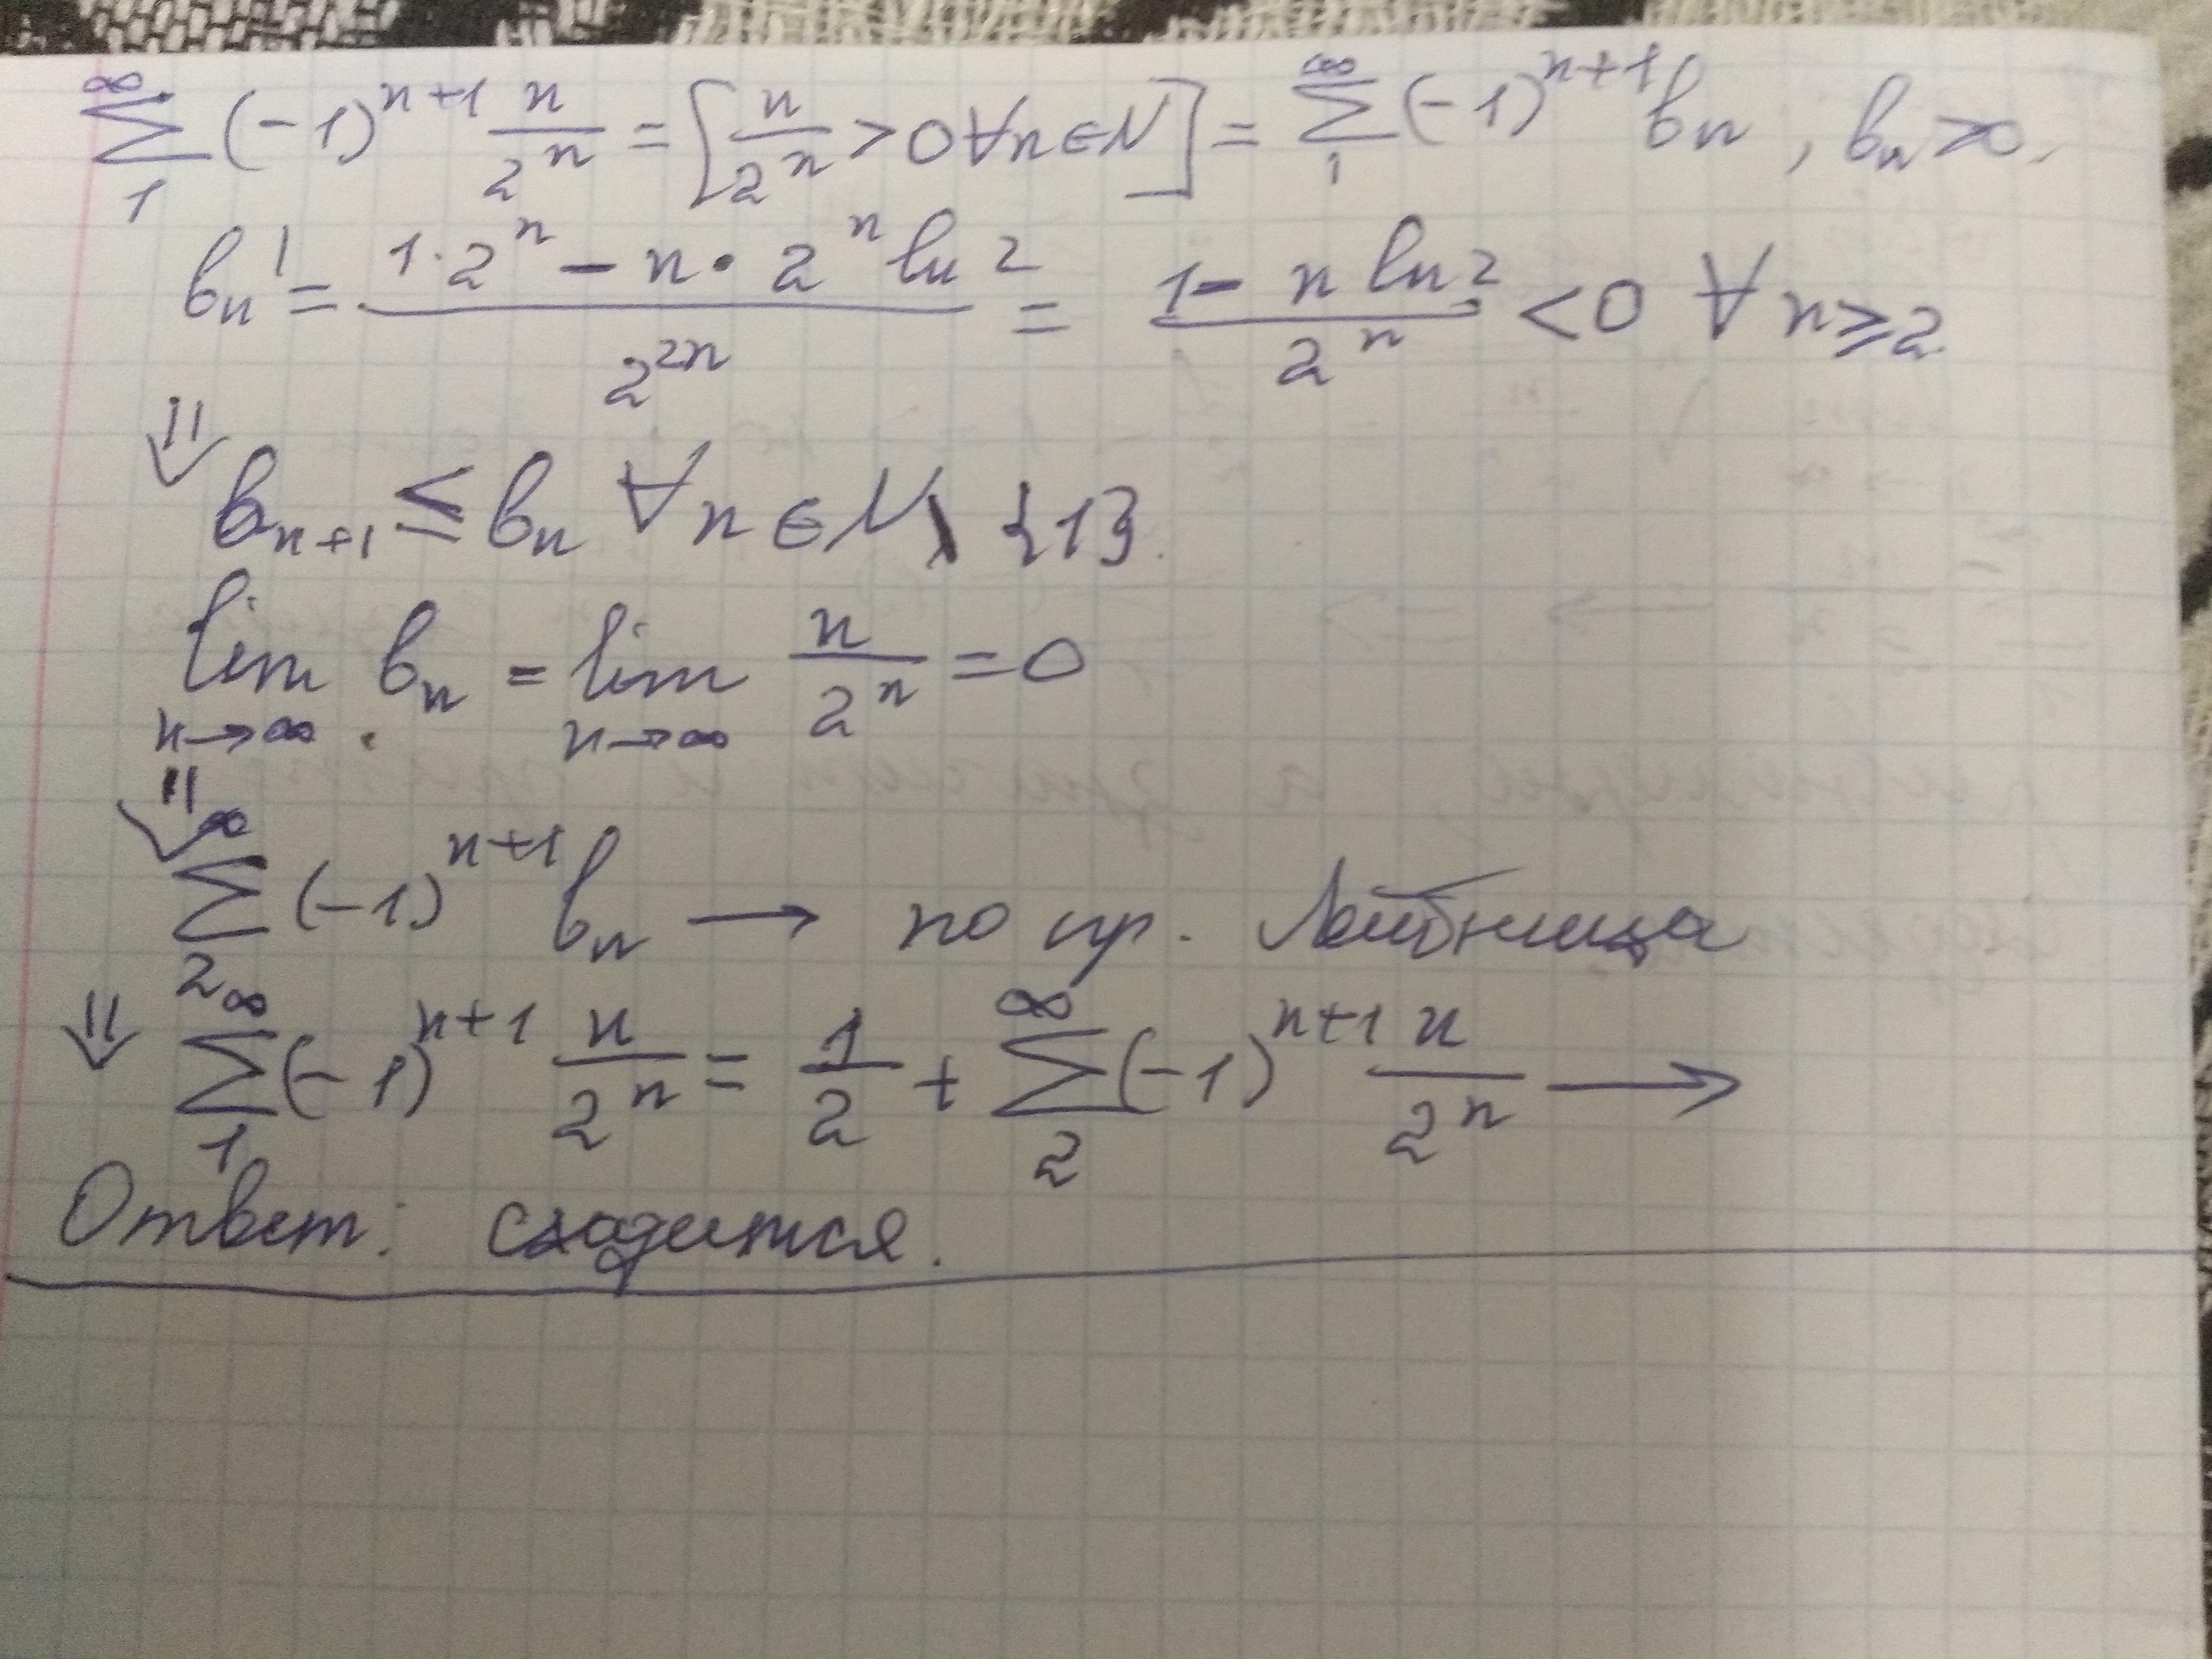 ∞∑1 (-1)^(n+1) n/2^n = [n/2^n > 0 ∀n∈N] = ∞∑1 (-1)^(n+1) bn, bn>0.
bn' = (1·2^n - n·2^n ln2)/2^(2n) = (1 - n ln2)/2^n < 0 ∀n≥2
⇓ bn+1 ≤ bn ∀n∈N\{1}.
lim n→∞ bn = lim n→∞ n/2^n = 0
⇓ ∞∑2 (-1)^(n+1) bn → по пр. Лейбница
⇓ ∞∑1 (-1)^(n+1) n/2^n = 1/2 + ∞∑2 (-1)^(n+1) n/2^n →
Ответ: сходится.